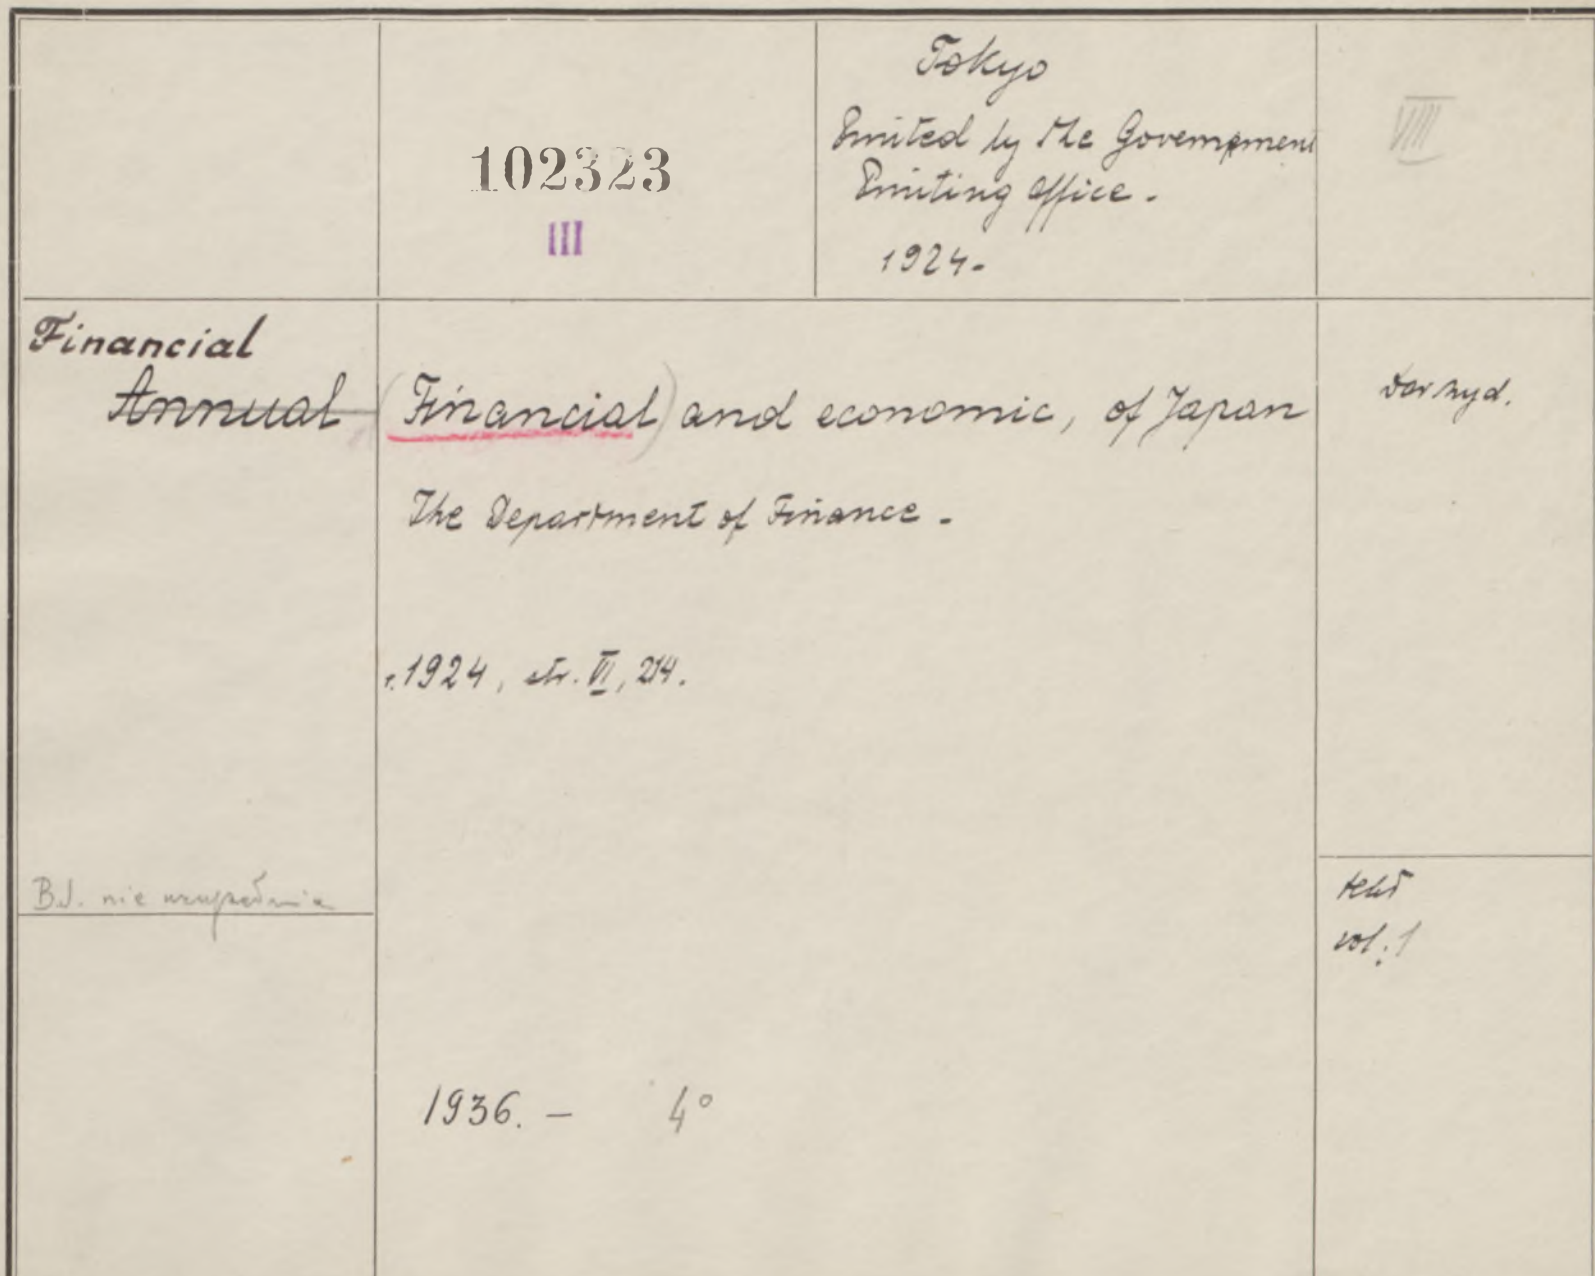 Tokyo
Printed by the Government
Printing Office.
1924.
VIII
102323
III
Financial
Annual (Financial) and economic, of Japan
The Department of Finance.
r. 1924, str. VI, 214.
Dar wyd.
B.J. nie uzupełnia
tekst
vol. 1
1936. — 4°